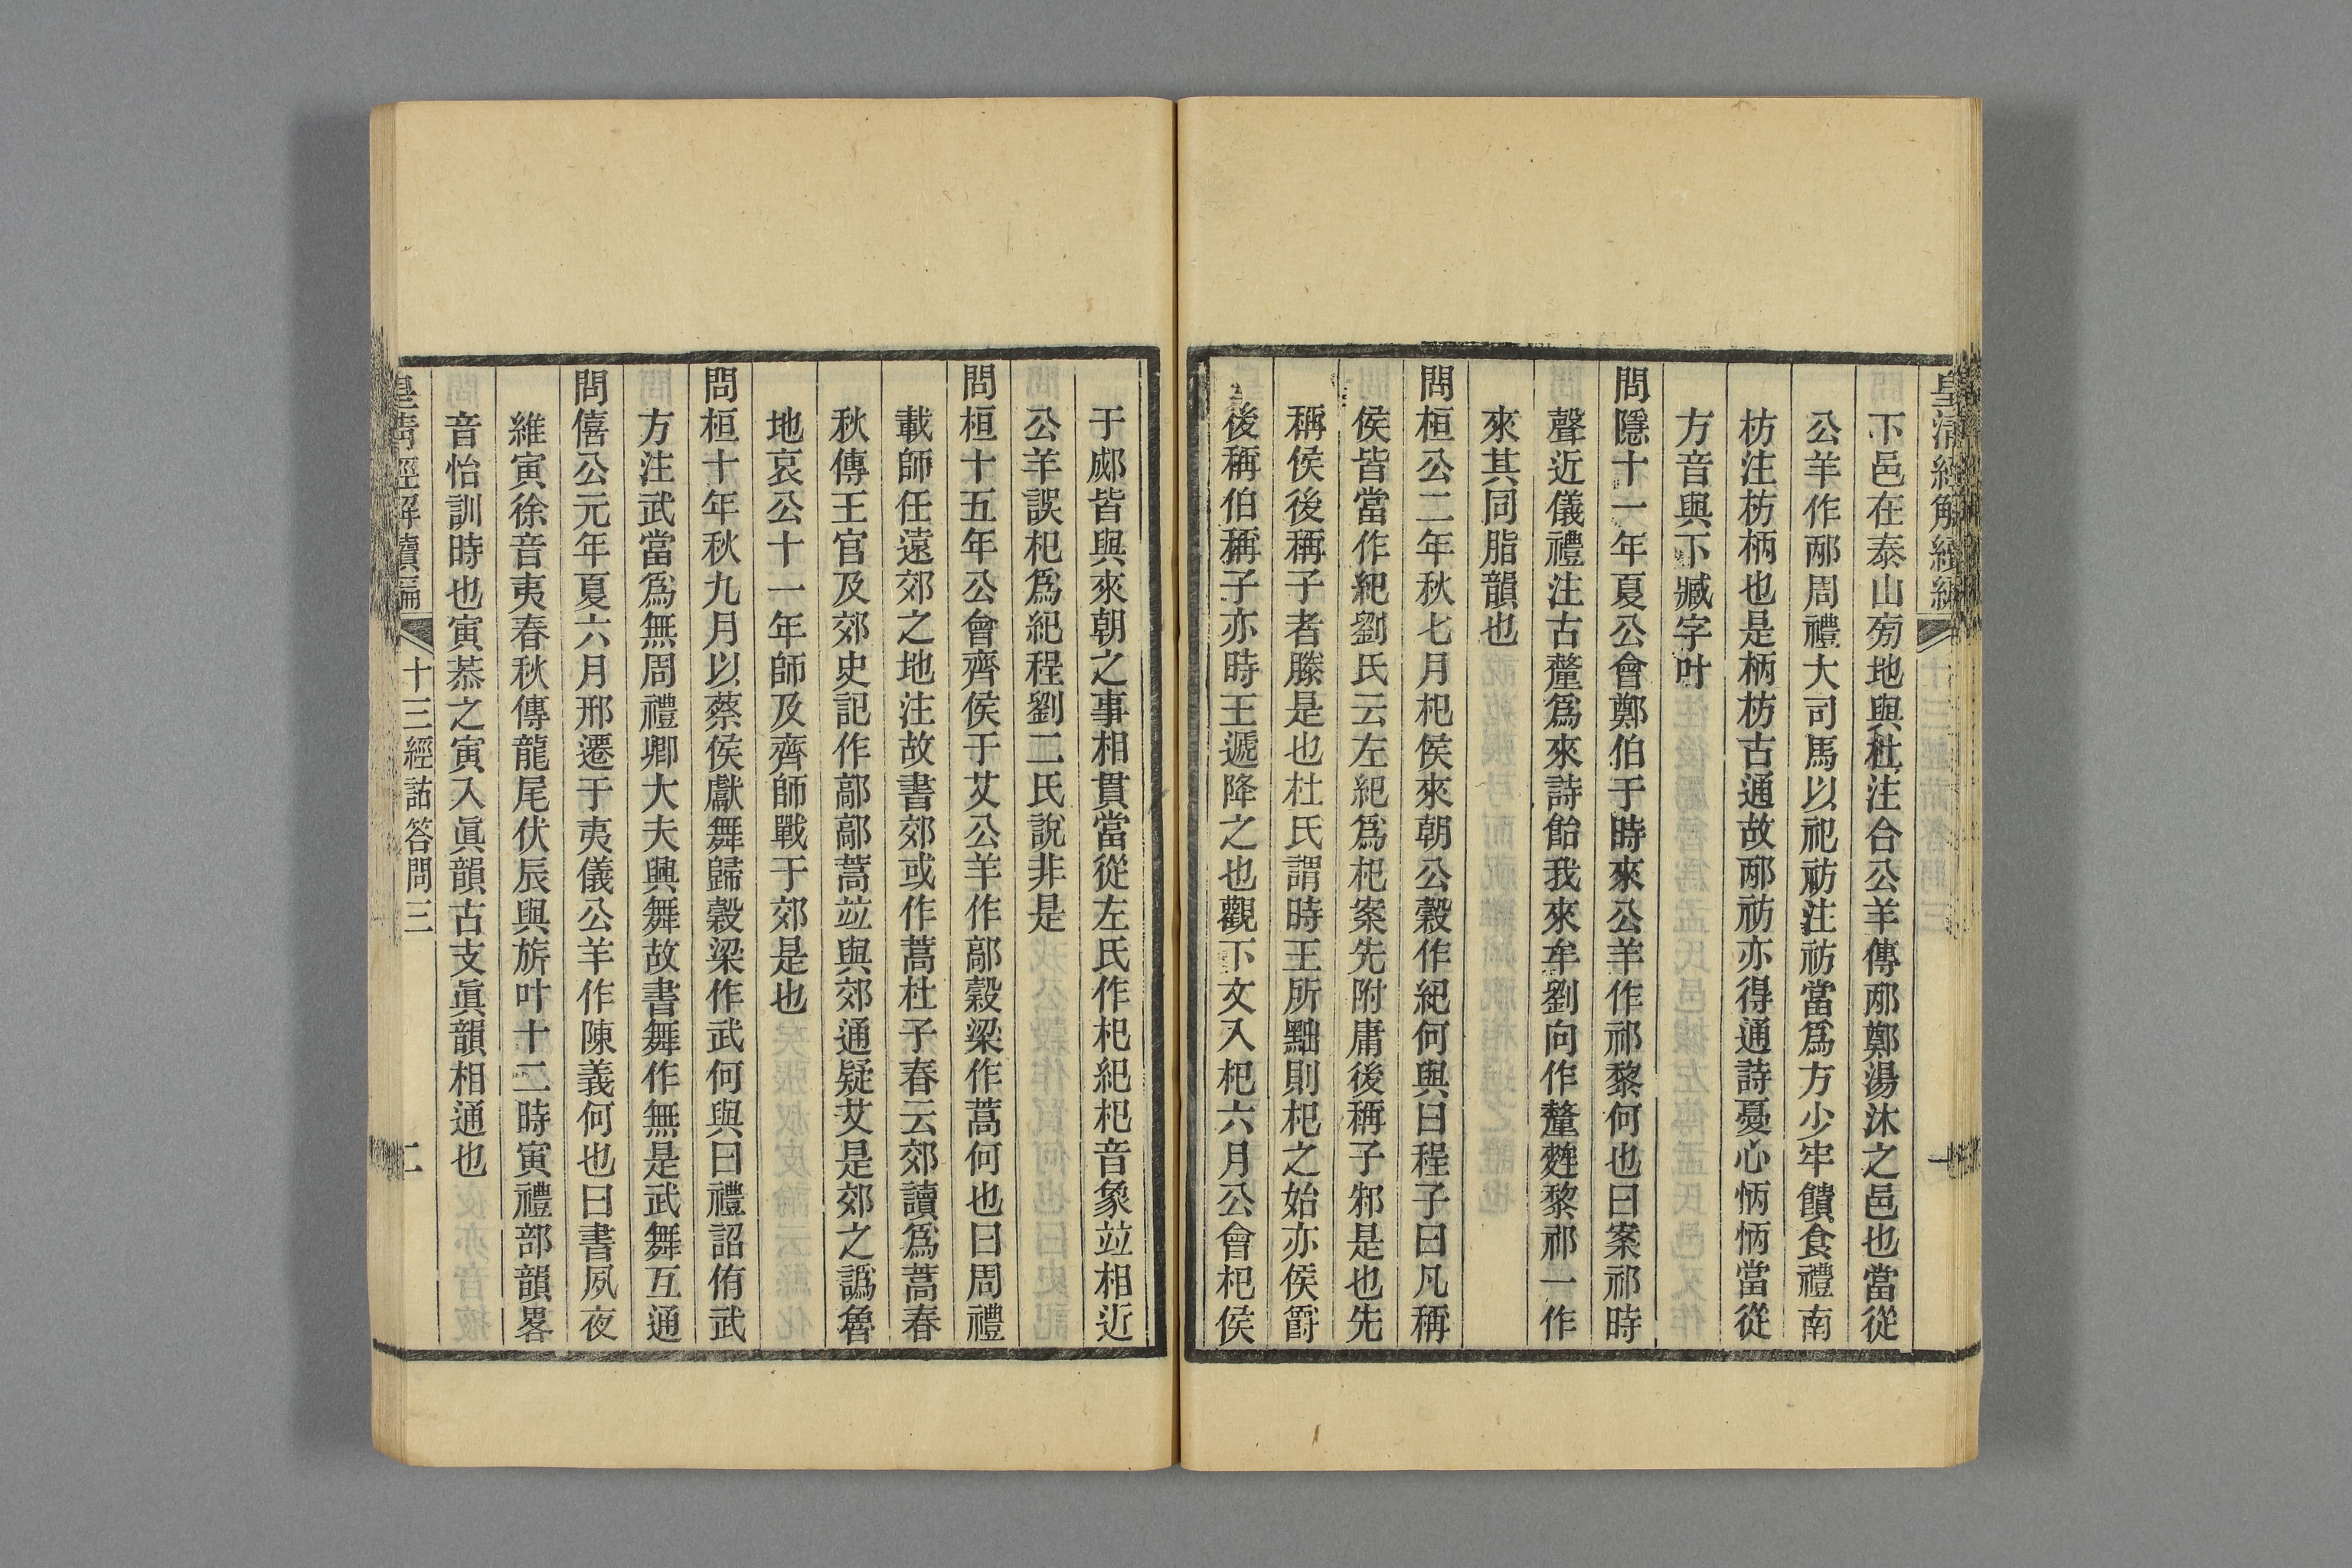 皇清經解續編
一
下邑在泰山㫄地與杜注合公羊傳邴鄭湯沐之邑也當從
公羊作邴周禮大司馬以祀祊注祊當爲方少牢饋食禮南
枋注枋柄也是柄枋古通故邴祊亦得通詩憂心怲怲當從
方音與下臧字叶
問隱十一年夏公會鄭伯于時來公羊作祁黎何也曰案祁時
聲近儀禮注古釐爲來詩飴我來牟劉向作釐麰黎祁一作
來其同脂韻也
問桓公二年秋七月杞侯來朝公穀作紀何與曰程子曰凡稱
侯皆當作紀劉氏云左紀爲杞案先附庸後稱子邾是也先
稱侯後稱子者滕是也杜氏謂時王所黜則杞之始亦侯爵
後稱伯稱子亦時王遞降之也觀下文入杞六月公會杞侯
于郕皆與來朝之事相貫當從左氏作杞紀杞音象竝相近
公羊誤杞爲紀程劉二氏說非是
問桓十五年公會齊侯于艾公羊作鄗穀梁作蒿何也曰周禮
載師任遠郊之地注故書郊或作蒿杜子春云郊讀爲蒿春
秋傳王官及郊史記作鄗鄗蒿竝與郊通疑艾是郊之譌魯
地哀公十一年師及齊師戰于郊是也
問桓十年秋九月以蔡侯獻舞歸穀梁作武何與曰禮詔侑武
方注武當爲無周禮鄉大夫興舞故書舞作無是武舞互通
問僖公元年夏六月邢遷于夷儀公羊作陳義何也曰書夙夜
維寅徐音夷春秋傳龍尾伏辰與旂叶十二時寅禮部韻畧
音怡訓時也寅恭之寅入眞韻古支眞韻相通也
皇清經解續編
十三經詁答問三
二